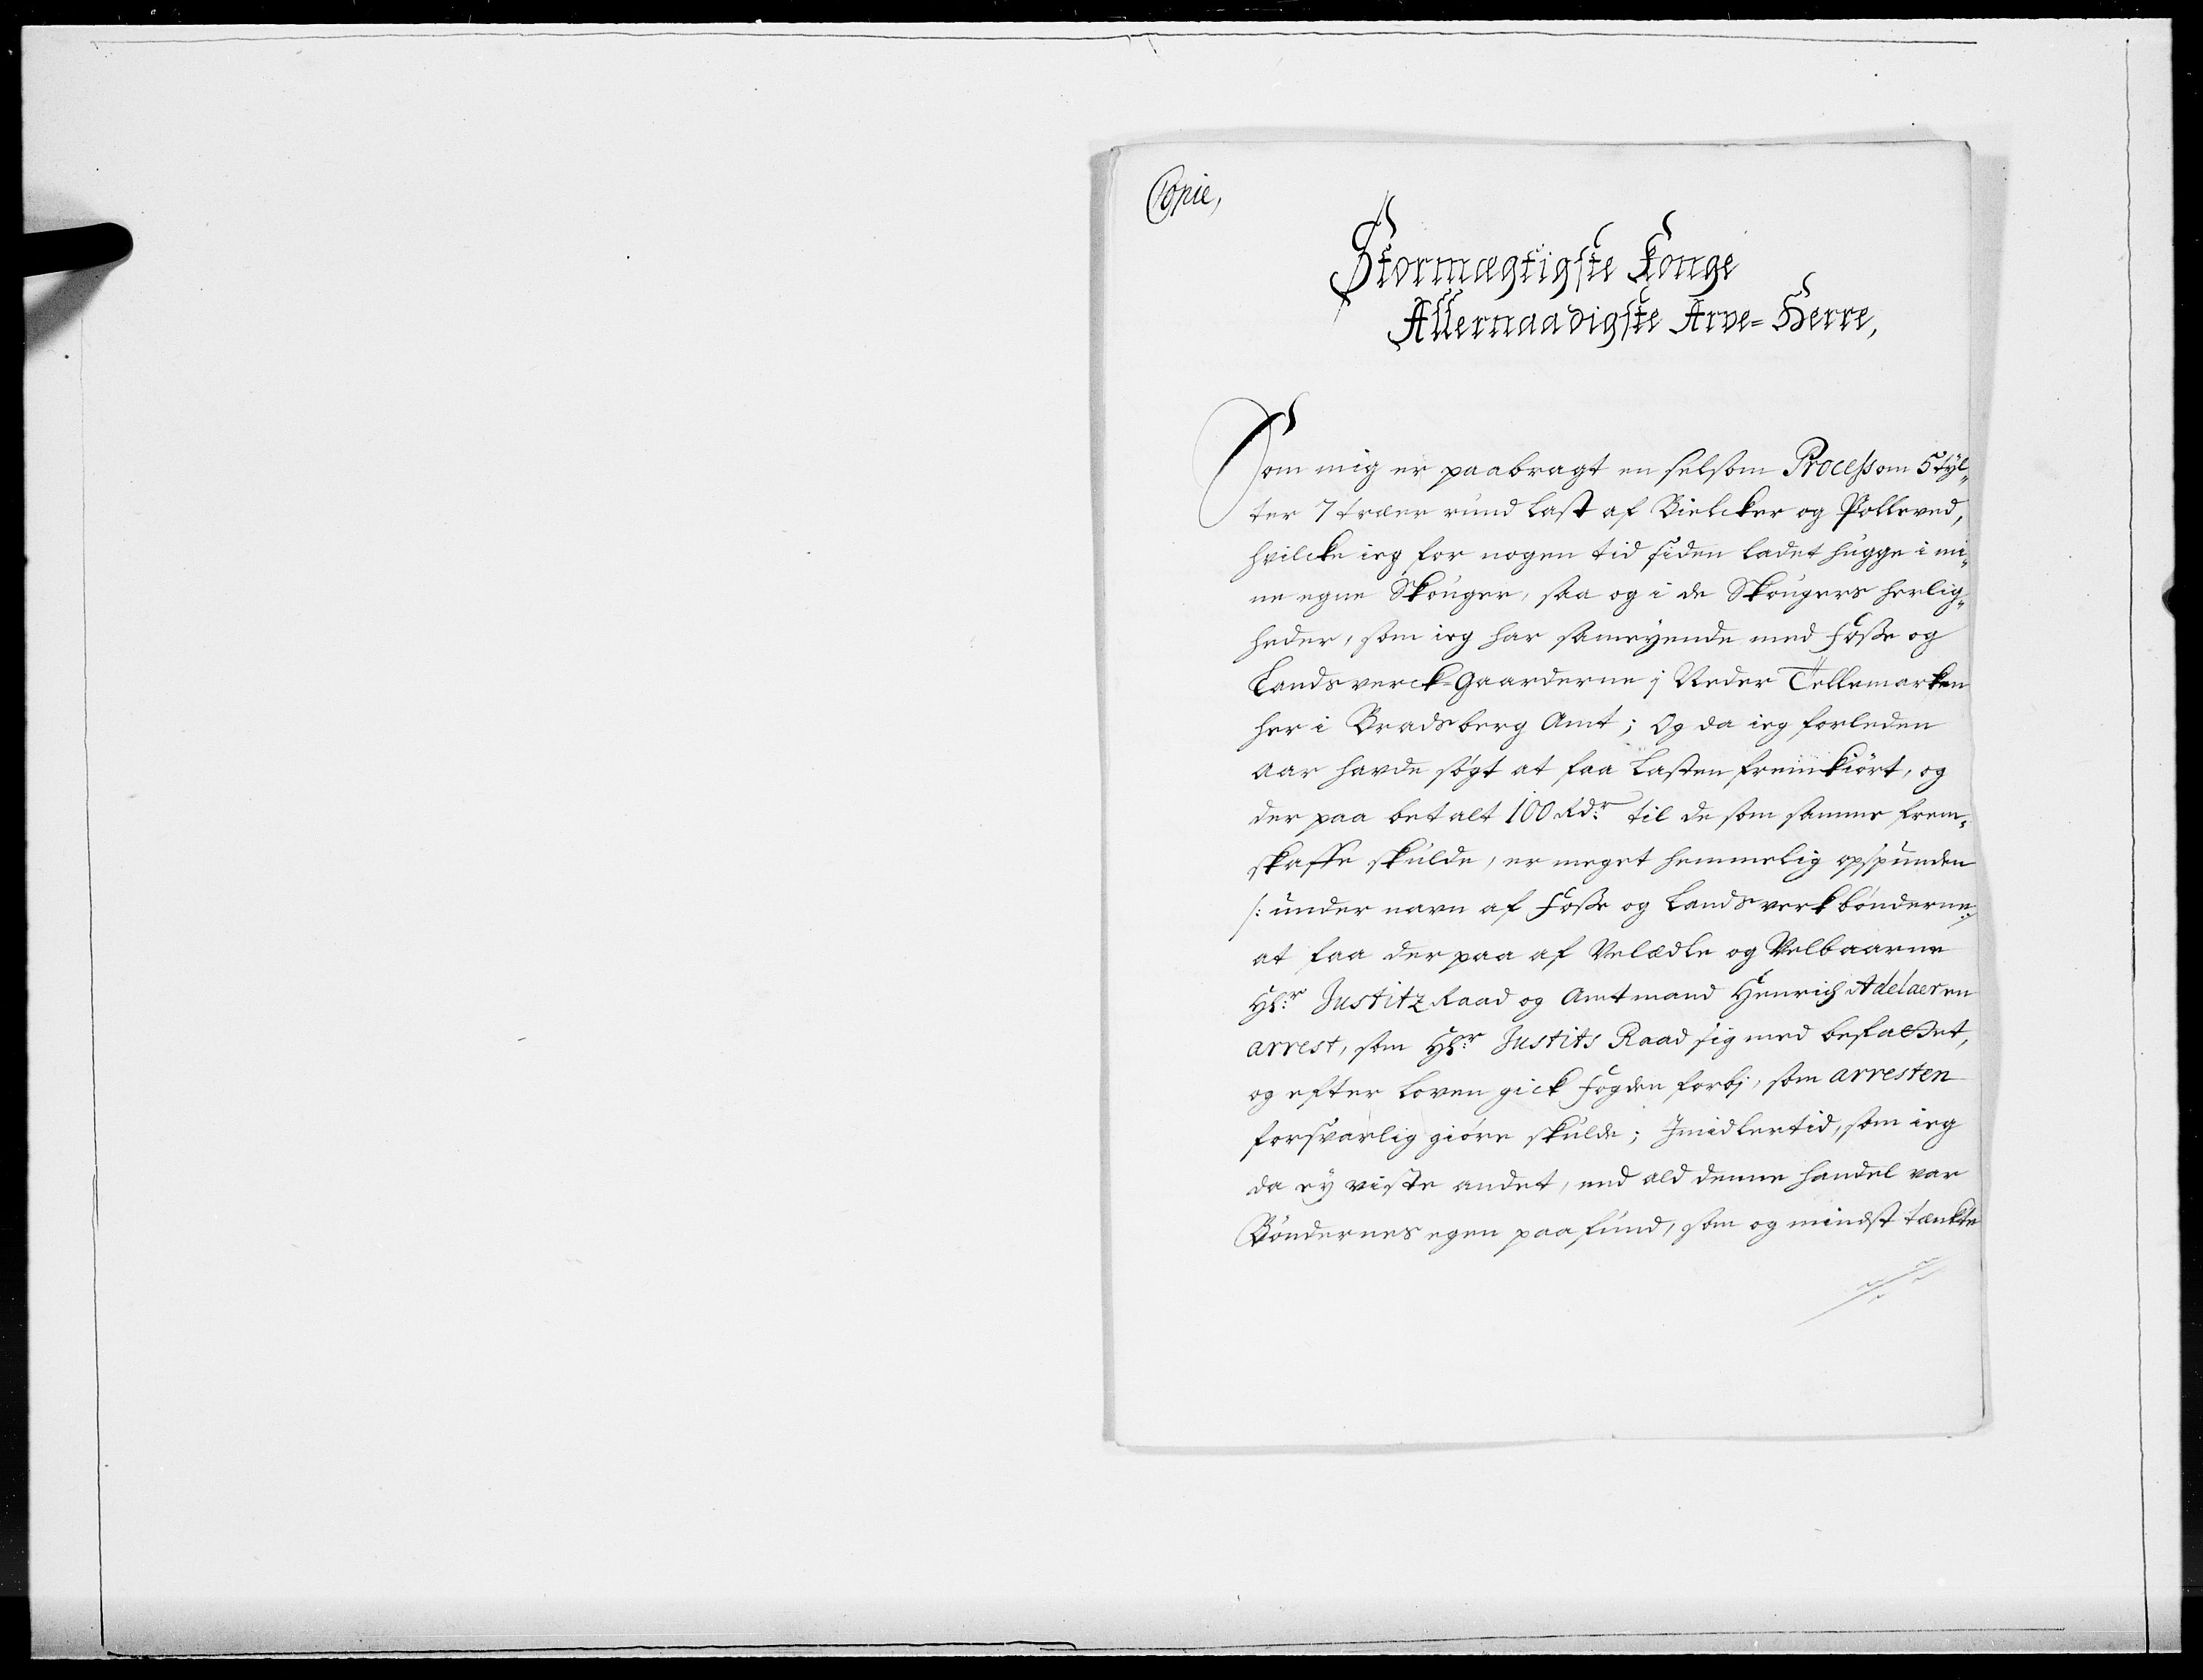 Copie,
Stormægtigste Konge
Allernaadigste Arve=Herre,
Som mig er paabragt en selsom Process om 5 tyl„
ter 7 træer rund Last af Bielcker og Polleved,
hvilcke ieg for nogen tid siden ladet hugge i mi„
ne egne Skouger, saa og i de Skougers herlig„
heder, som ieg har sameyende med Fosse og
Landsverck=Gaarderne j Neder Tellemarken
her i Bradsberg Amt; Og da ieg forleden
Aar havde søgt at faa Lasten fremkiört, og
der paa betalt 100 Rdr: til de som samme frem„
skaffe skulde, er meget hemmelig opspunden
/: under navn af Fosse og Landsverkbønderne :/
at faa der paa af Velædle og Velbaarne
Hr: Justitz Raad og Amtmand Henrich Adelaer en
arrest, som Hr: Justits Raad sig med befattet,
og efter Loven gick Fogden forbj, som arresten
forsvarlig giöre skulde; Jmidlertid, som ieg
da ey viste andet, end ald denne handel var
Böndernes egen paafund, som og mindst tænkte